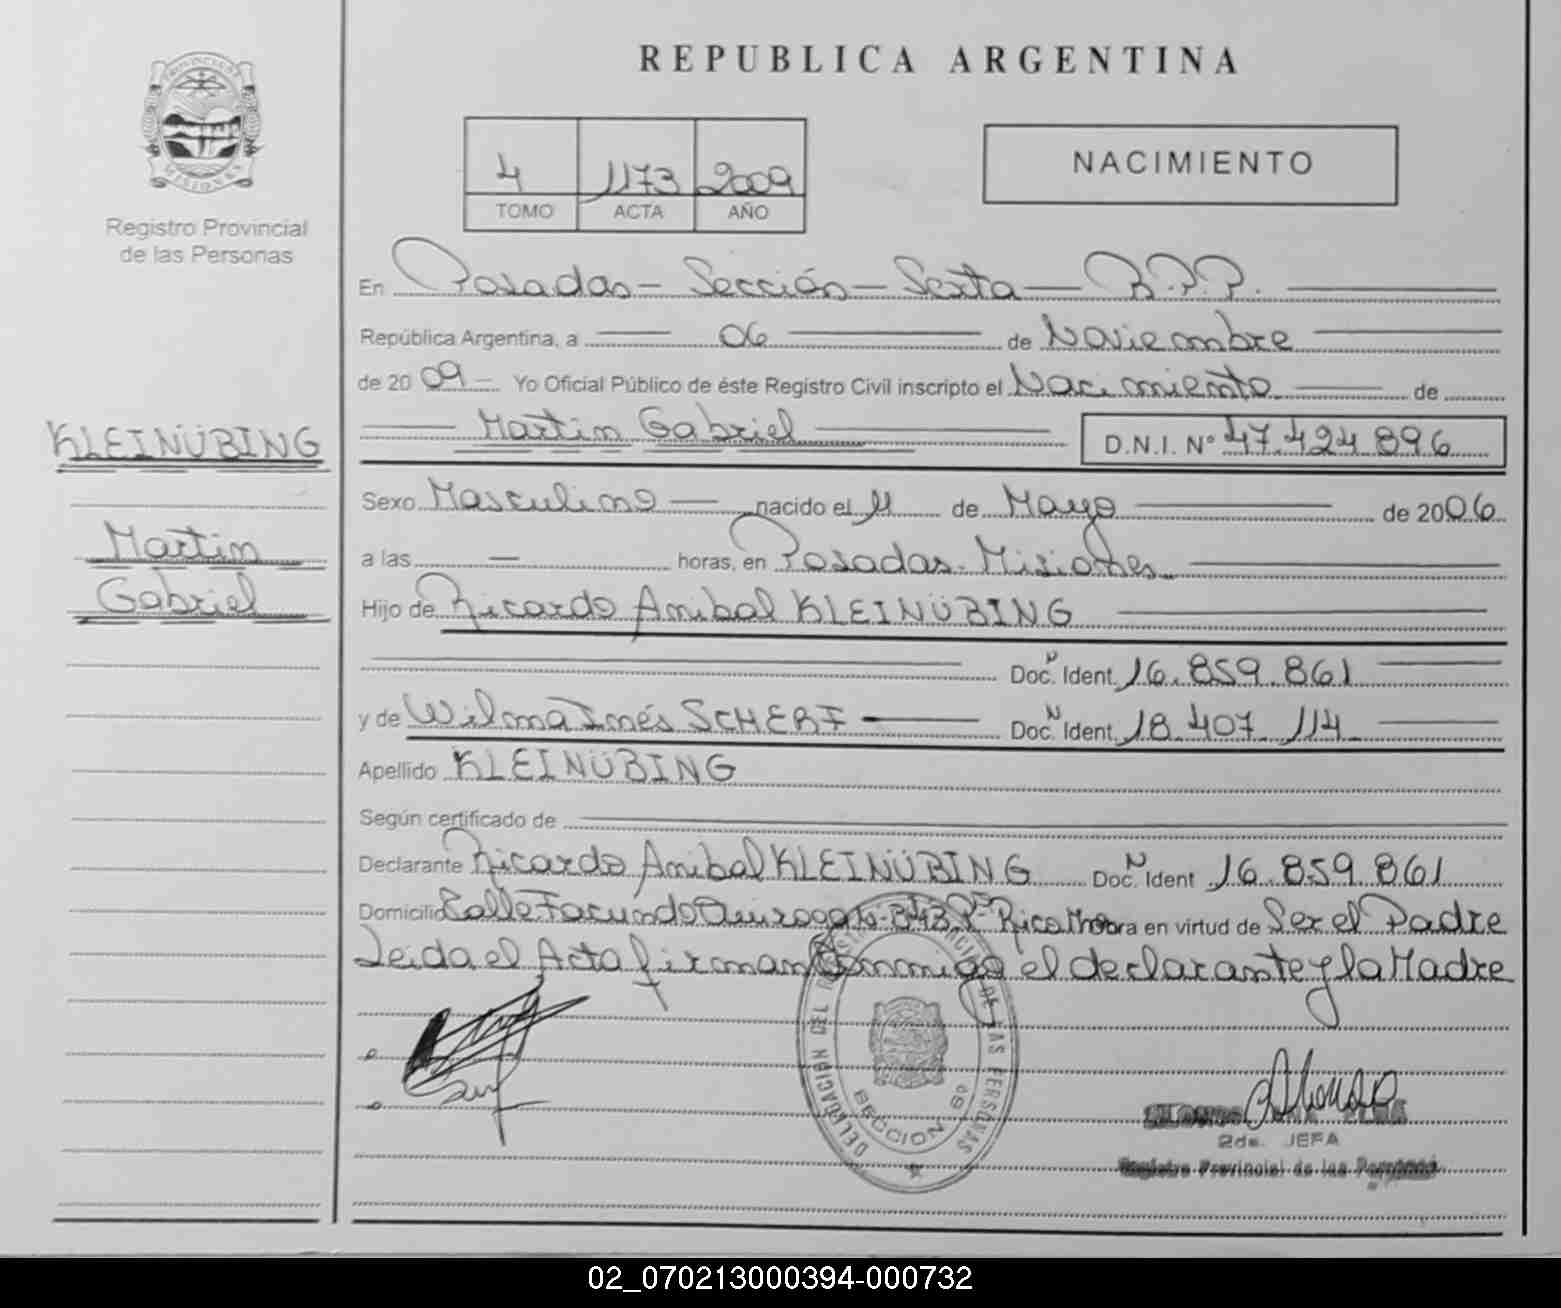 REPUBLICA ARGENTINA
PROVINCIA DE
MISIONES
Registro Provincial
de las Personas
4 1173 2009
TOMO ACTA AÑO
NACIMIENTO
En Posadas - Sección - Sexta - R.P.P.
República Argentina, a 06 de Noviembre
de 2009 Yo Oficial Público de éste Registro Civil inscripto el Nacimiento de
KLEINÜBING
Martin
Gabriel
Martin Gabriel D.N.I. N° 47.424.896
Sexo Masculino nacido el 11 de Mayo de 2006
a las — horas, en Posadas - Misiones
Hijo de Ricardo Anibal KLEINÜBING
Doc. N Ident. 16.859.861
y de Wilma Inés SCHERF Doc. N Ident. 18.407.114
Apellido KLEINÜBING
Según certificado de
Declarante Ricardo Anibal KLEINÜBING Doc. N Ident. 16.859.861
Domicilio Calle Facundo Quiroga N° en virtud de Ser el Padre
Leida el Acta firman conmigo el declarante y la Madre
DELEGACION
DE LAS PERSONAS
SECCION 6º
2da. JEFA
Registro Provincial de las Personas
02_070213000394-000732